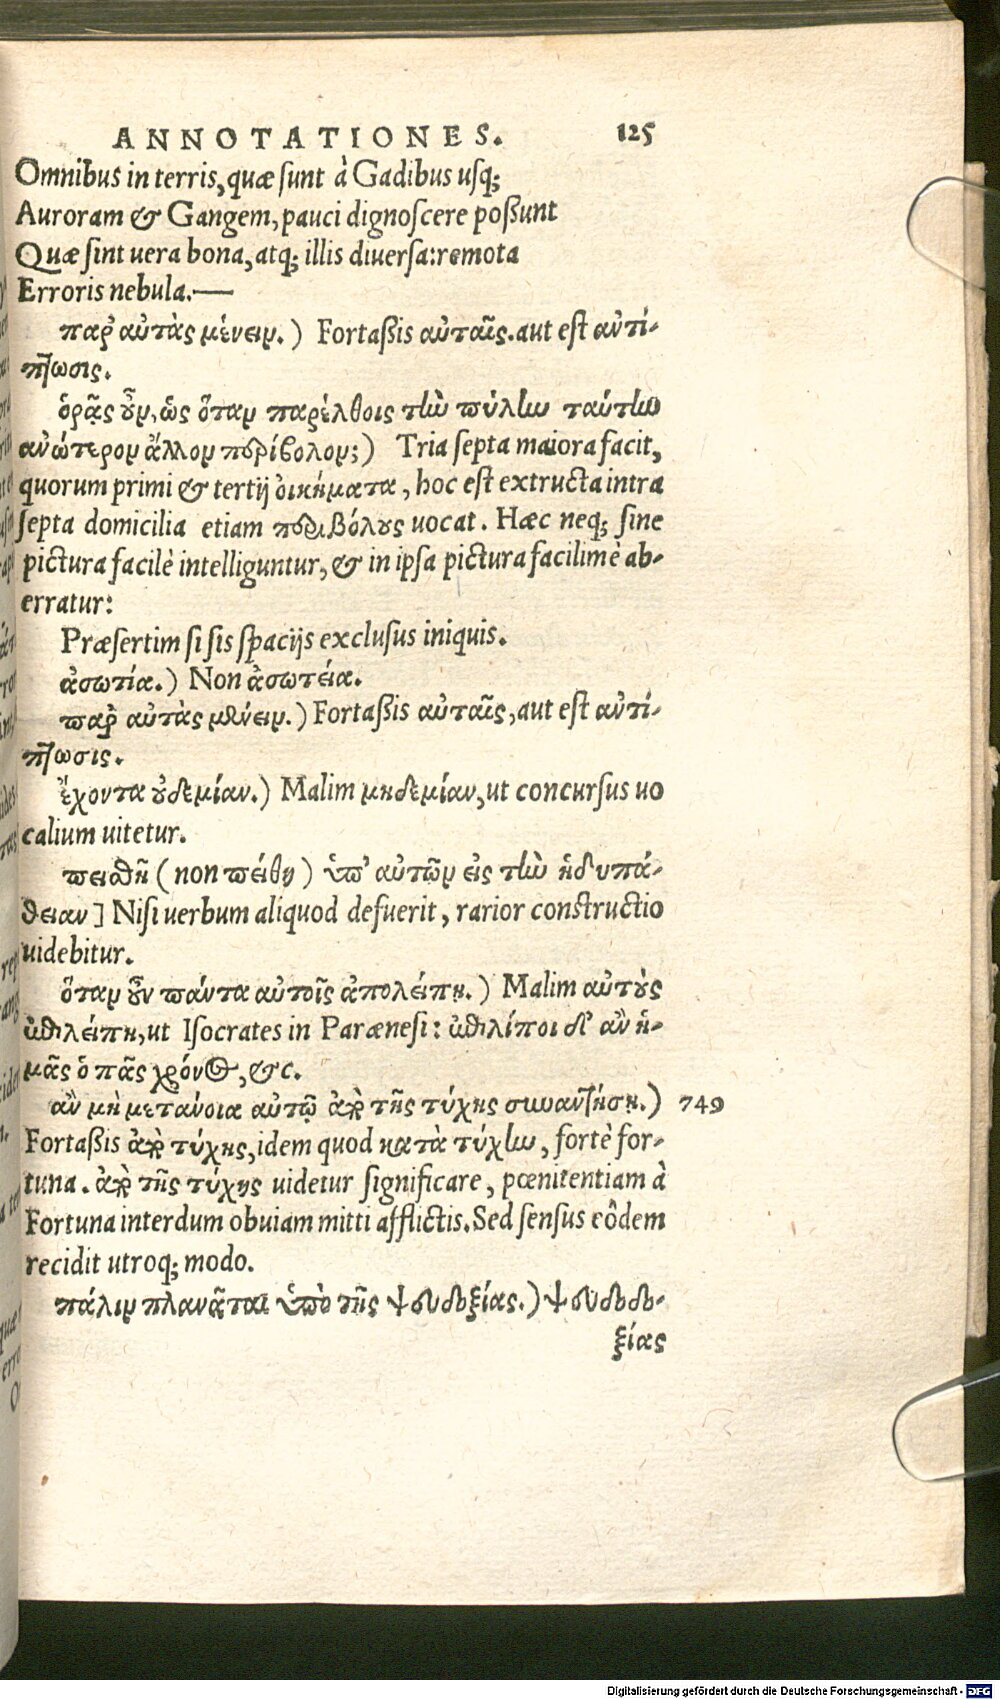 ANNOTATIONES. 125
Omnibus in terris, quæ sunt à Gadibus usq;
Auroram & Gangem, pauci dignoscere possunt
Quæ sint uera bona, atq; illis diuersa: remota
Erroris nebula.—
παρ' αὐτὰς μένειν.) Fortassis αὐταῖς. aut est ἀντί-
πτωσις.
ὁρᾷς οὖν, ὡς ὅταν παρέλθοις τὴν πύλην ταύτην
ἀνώτερον ἄλλον περίβολον;) Tria septa maiora facit,
quorum primi & tertij οἰκήματα, hoc est extructa intra
septa domicilia etiam περιβόλους uocat. Hæc neq; sine
pictura facilè intelliguntur, & in ipsa pictura facilimè ab-
erratur:
Præsertim si sis spacijs exclusus iniquis.
ἀσωτία.) Non ἀσωτεία.
παρ' αὐτὰς μένειν.) Fortassis αὐταῖς, aut est ἀντί-
πτωσις.
ἔχοντα οὐδεμίαν.) Malim μηδεμίαν, ut concursus uo
calium uitetur.
πειθῆ (non πείθῃ) ὑπ' αὐτῶν εἰς τὴν ἡδυπά-
θειαν] Nisi uerbum aliquod defuerit, rarior constructio
uidebitur.
ὅταν οὖν πάντα αὐτοῖς ἀπολείπῃ.) Malim αὐτοὺς
ἐπιλείπῃ, ut Isocrates in Parænesi: ἐπιλίποι δ' ἂν ἡ-
μᾶς ὁ πᾶς χρόνος, &c.
ἂν μὴ μετάνοια αὐτῷ ἀπὸ τῆς τύχης συναντήσῃ.) 749
Fortassis ἀπὸ τύχης, idem quod κατὰ τύχην, fortè for-
tuna. ἀπὸ τῆς τύχης uidetur significare, pœnitentiam à
Fortuna interdum obuiam mitti afflictis. Sed sensus eôdem
recidit utroq; modo.
πάλιν πλανᾶται ὑπὸ τῆς ψευδοξίας.) ψευδοδο-
ξίας
Digitalisierung gefördert durch die Deutsche Forschungsgemeinschaft - DFG